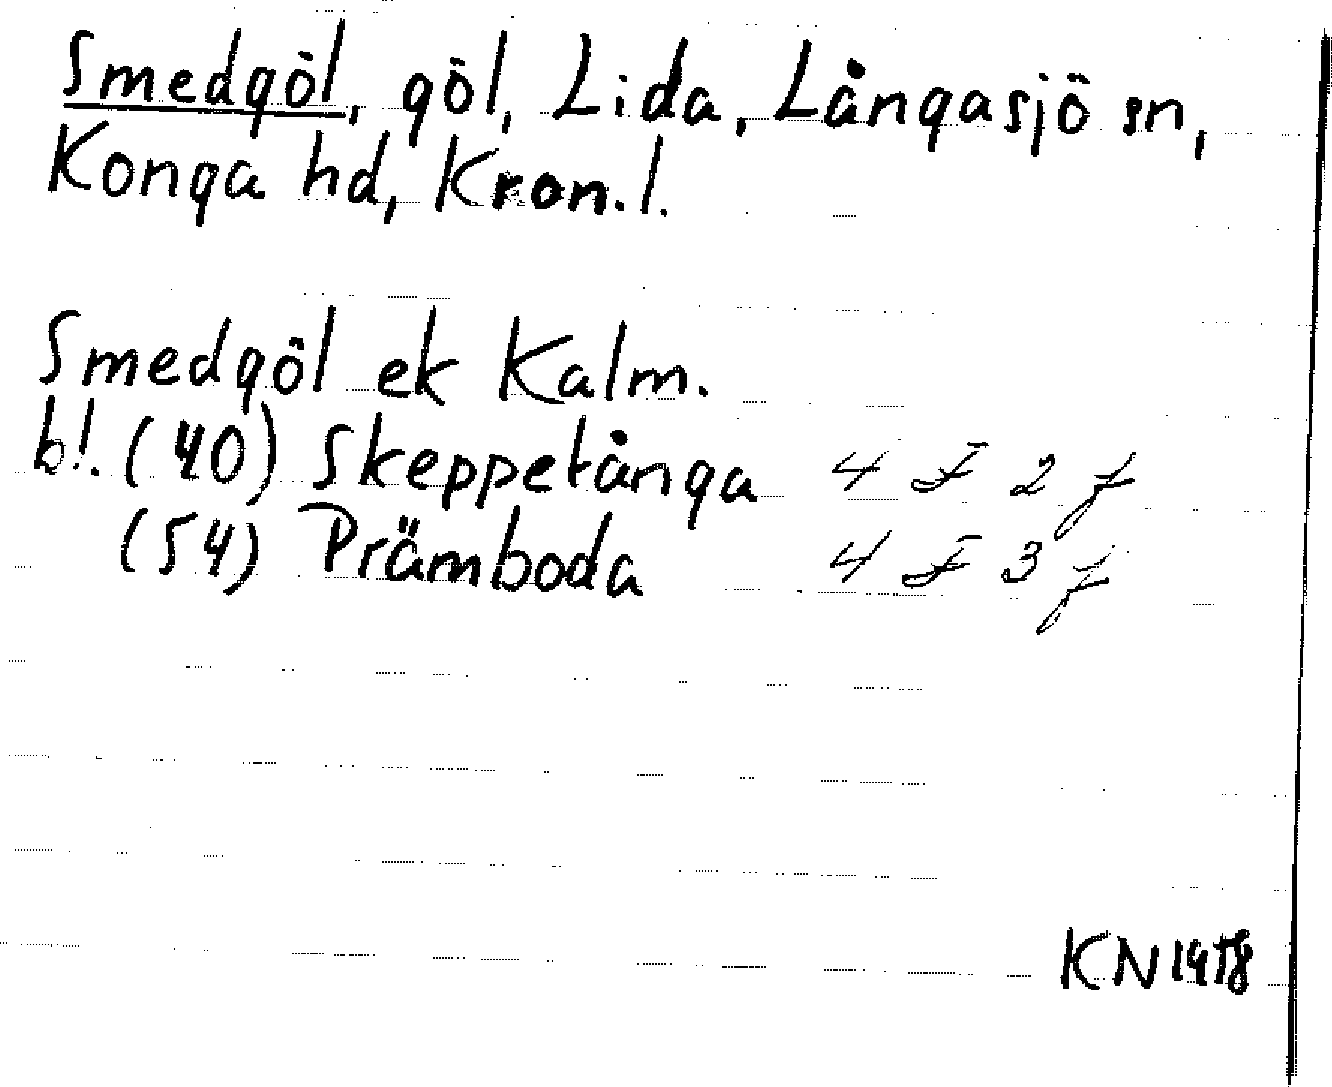 Smedgöl, göl, Lida, Långasjö sn,
Konga hd, Kron.l.
Smedgöl ek Kalm.
bl. (40) Skeppetånga 4 F 2 f
(54) Främboda 4 F 3 f
KN 1958